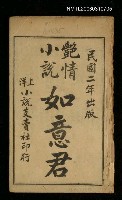 民國二年出版
艷情
小說
如意君
上洋
小說支賣社印行